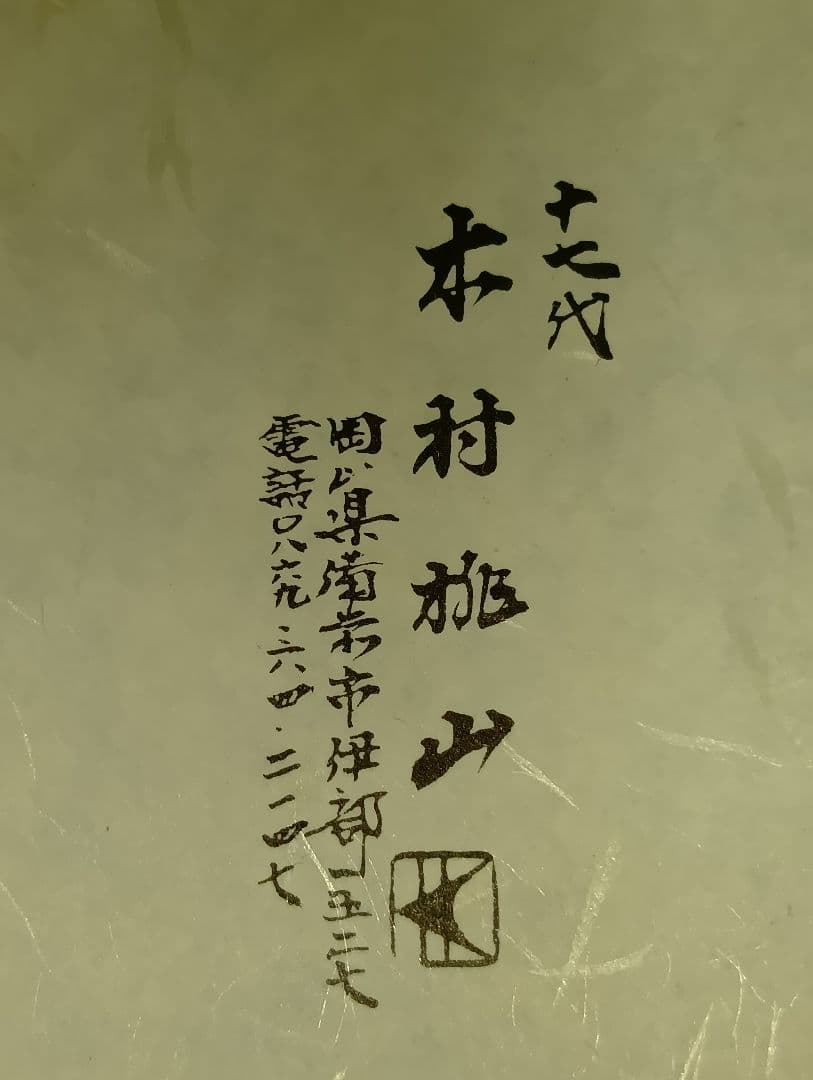 十七代
木村桃山
岡山県備前市伊部一五二七
電話〇八六九・六四・二一四七